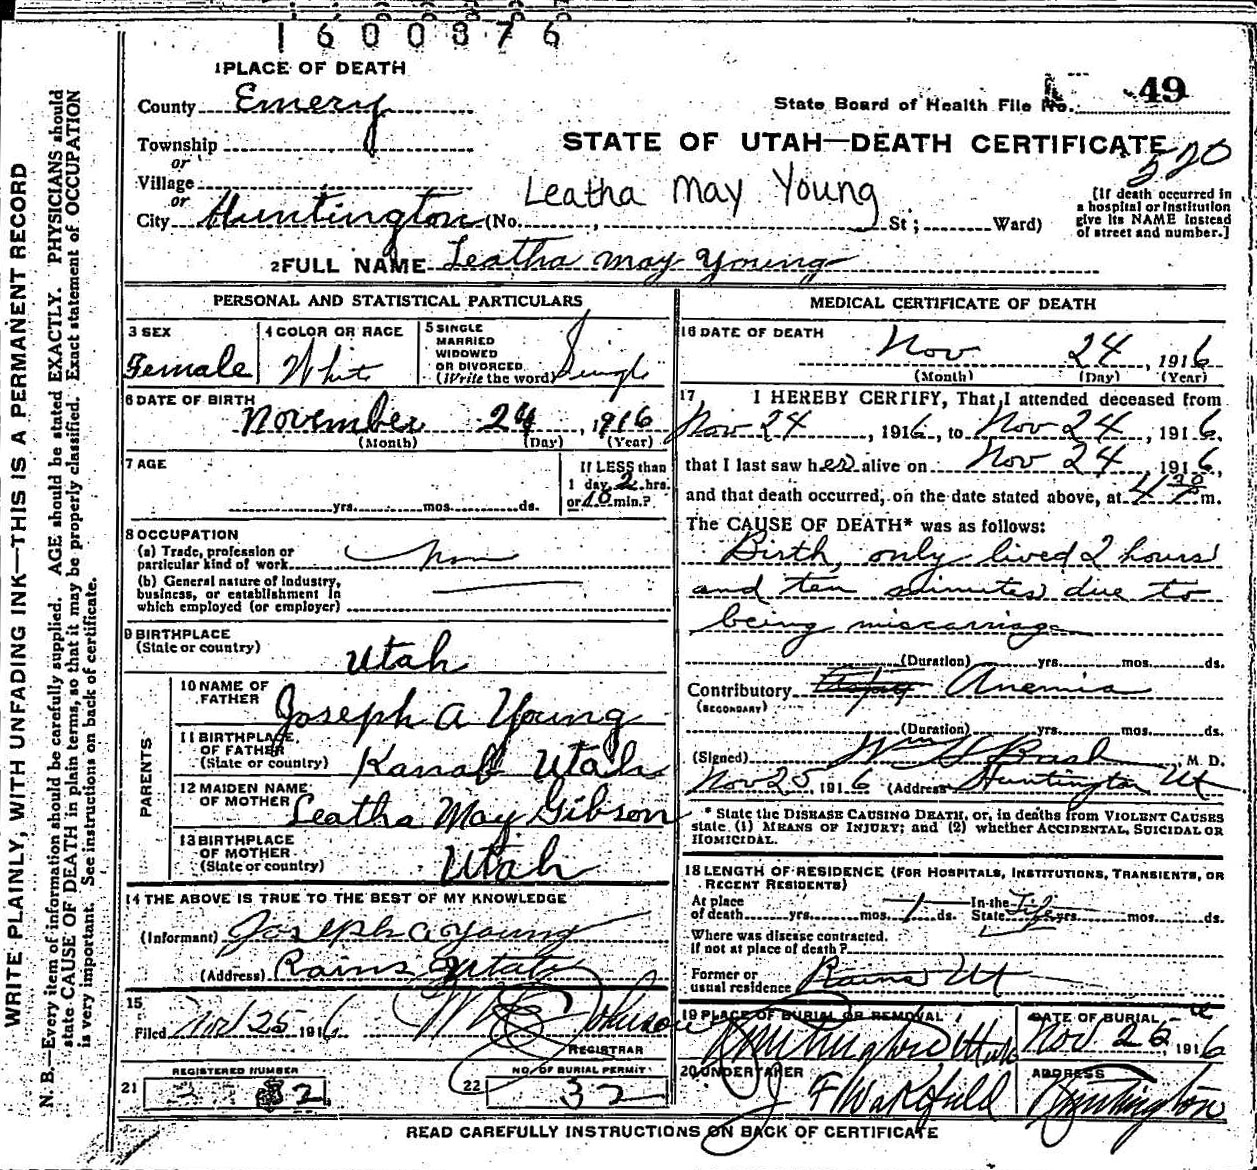 1600876
1 PLACE OF DEATH
County Emery
State Board of Health File No. 49
Township
or
STATE OF UTAH—DEATH CERTIFICATE
520
Village
or
Leatha May Young
City Huntington (No. , St ; Ward)
(If death occurred in
a hospital or institution
give its NAME instead
of street and number.]
2 FULL NAME Leatha May Young
PERSONAL AND STATISTICAL PARTICULARS
3 SEX
Female
4 COLOR OR RACE
White
5 SINGLE
MARRIED
WIDOWED
OR DIVORCED
(Write the word) Single
6 DATE OF BIRTH
November 24, 1916
(Month) (Day) (Year)
7 AGE
yrs. mos. ds.
If LESS than
1 day, 2 hrs.
or 10 min.?
8 OCCUPATION
(a) Trade, profession or
particular kind of work
(b) General nature of industry,
business, or establishment in
which employed (or employer)
9 BIRTHPLACE
(State or country)
Utah
PARENTS
10 NAME OF
FATHER
Joseph A Young
11 BIRTHPLACE
OF FATHER
(State or country) Kanab Utah
12 MAIDEN NAME
OF MOTHER Leatha May Gibson
13 BIRTHPLACE
OF MOTHER
(State or country) Utah
14 THE ABOVE IS TRUE TO THE BEST OF MY KNOWLEDGE
(Informant) Joseph A Young
(Address) Rains Utah
15
Filed Nov 25 1916 Johnson
REGISTRAR
REGISTERED NUMBER
21 32
NO. OF BURIAL PERMIT
22 32
MEDICAL CERTIFICATE OF DEATH
16 DATE OF DEATH
Nov 24, 1916
(Month) (Day) (Year)
17, I HEREBY CERTIFY, That I attended deceased from
Nov 24, 1916, to Nov 24, 1916,
that I last saw her alive on Nov 24, 1916,
and that death occurred, on the date stated above, at 4 30 P m.
The CAUSE OF DEATH* was as follows:
Birth, only lived 2 hours
and ten minutes due to
being miscarriage
(Duration) yrs. mos. ds.
Contributory Anemia
(SECONDARY)
(Duration) yrs. mos. ds.
(Signed) , M. D.
Nov 25, 1916 (Address) Huntington Ut
* State the DISEASE CAUSING DEATH, or, in deaths from VIOLENT CAUSES
state (1) MEANS OF INJURY; and (2) whether ACCIDENTAL, SUICIDAL OR
HOMICIDAL.
18 LENGTH OF RESIDENCE (FOR HOSPITALS, INSTITUTIONS, TRANSIENTS, OR
RECENT RESIDENTS)
At place In the
of death yrs. mos. 1 ds. State Life yrs. mos. ds.
Where was disease contracted,
If not at place of death?
Former or
usual residence Rains Ut
19 PLACE OF BURIAL OR REMOVAL
Huntington Utah
DATE OF BURIAL
Nov. 25, 1916
20 UNDERTAKER
ADDRESS
Huntington
READ CAREFULLY INSTRUCTIONS ON BACK OF CERTIFICATE
WRITE PLAINLY, WITH UNFADING INK—THIS IS A PERMANENT RECORD
N. B.—Every item of information should be carefully supplied. AGE should be stated EXACTLY. PHYSICIANS should
state CAUSE OF DEATH in plain terms, so that it may be properly classified. Exact statement of OCCUPATION
is very important. See instructions on back of certificate.